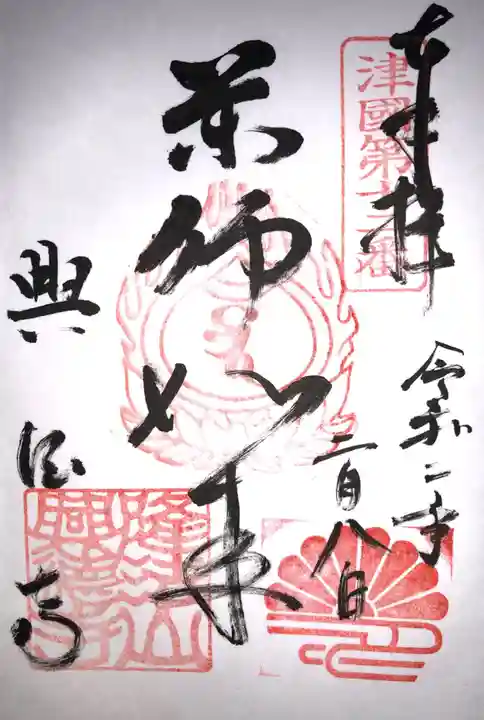 奉拝
津國第十二番
令和二年
二月八日
薬師如来
興徳寺